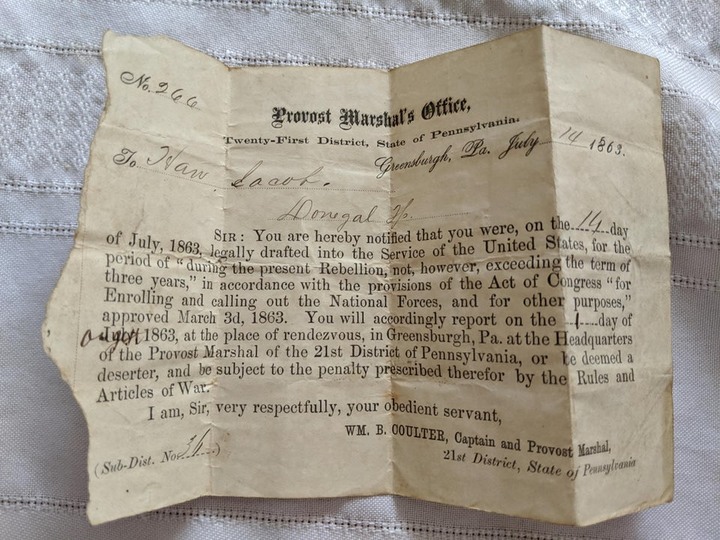 No. 266
Provost Marshal's Office,
Twenty-First District, State of Pennsylvania.
Greensburgh, Pa. July 14 1863.
To Haw, Jacob.
Donegal Tp.
SIR: You are hereby notified that you were, on the 14 day
of July, 1863, legally drafted into the Service of the United States, for the
period of "during the present Rebellion, not, however, exceeding the term of
three years," in accordance with the provisions of the Act of Congress "for
Enrolling and calling out the National Forces, and for other purposes,"
approved March 3d, 1863. You will accordingly report on the 1 day of
July 1863, at the place of rendezvous, in Greensburgh, Pa. at the Headquarters
of the Provost Marshal of the 21st District of Pennsylvania, or be deemed a
deserter, and be subject to the penalty prescribed therefor by the Rules and
Articles of War.
I am, Sir, very respectfully, your obedient servant,
WM. B. COULTER, Captain and Provost Marshal,
21st District, State of Pennsylvania
(Sub-Dist. No. 36)